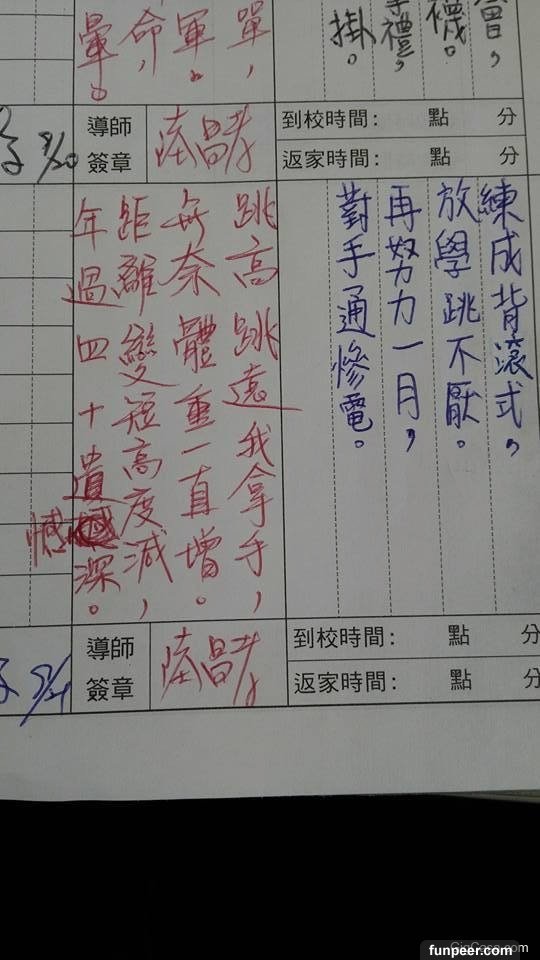 襪。
禮，
掛。
單，
軍。
命，
暈。
導師簽章
到校時間： 點 分
返家時間： 點 分
練成背滾式，
放學跳不厭。
再努力一月，
對手通慘電。
跳高跳遠我拿手，
無奈體重一直增。
距離變短高度減，
年過四十遺憾深。
導師簽章
到校時間： 點 分
返家時間： 點 分
funpeer.com